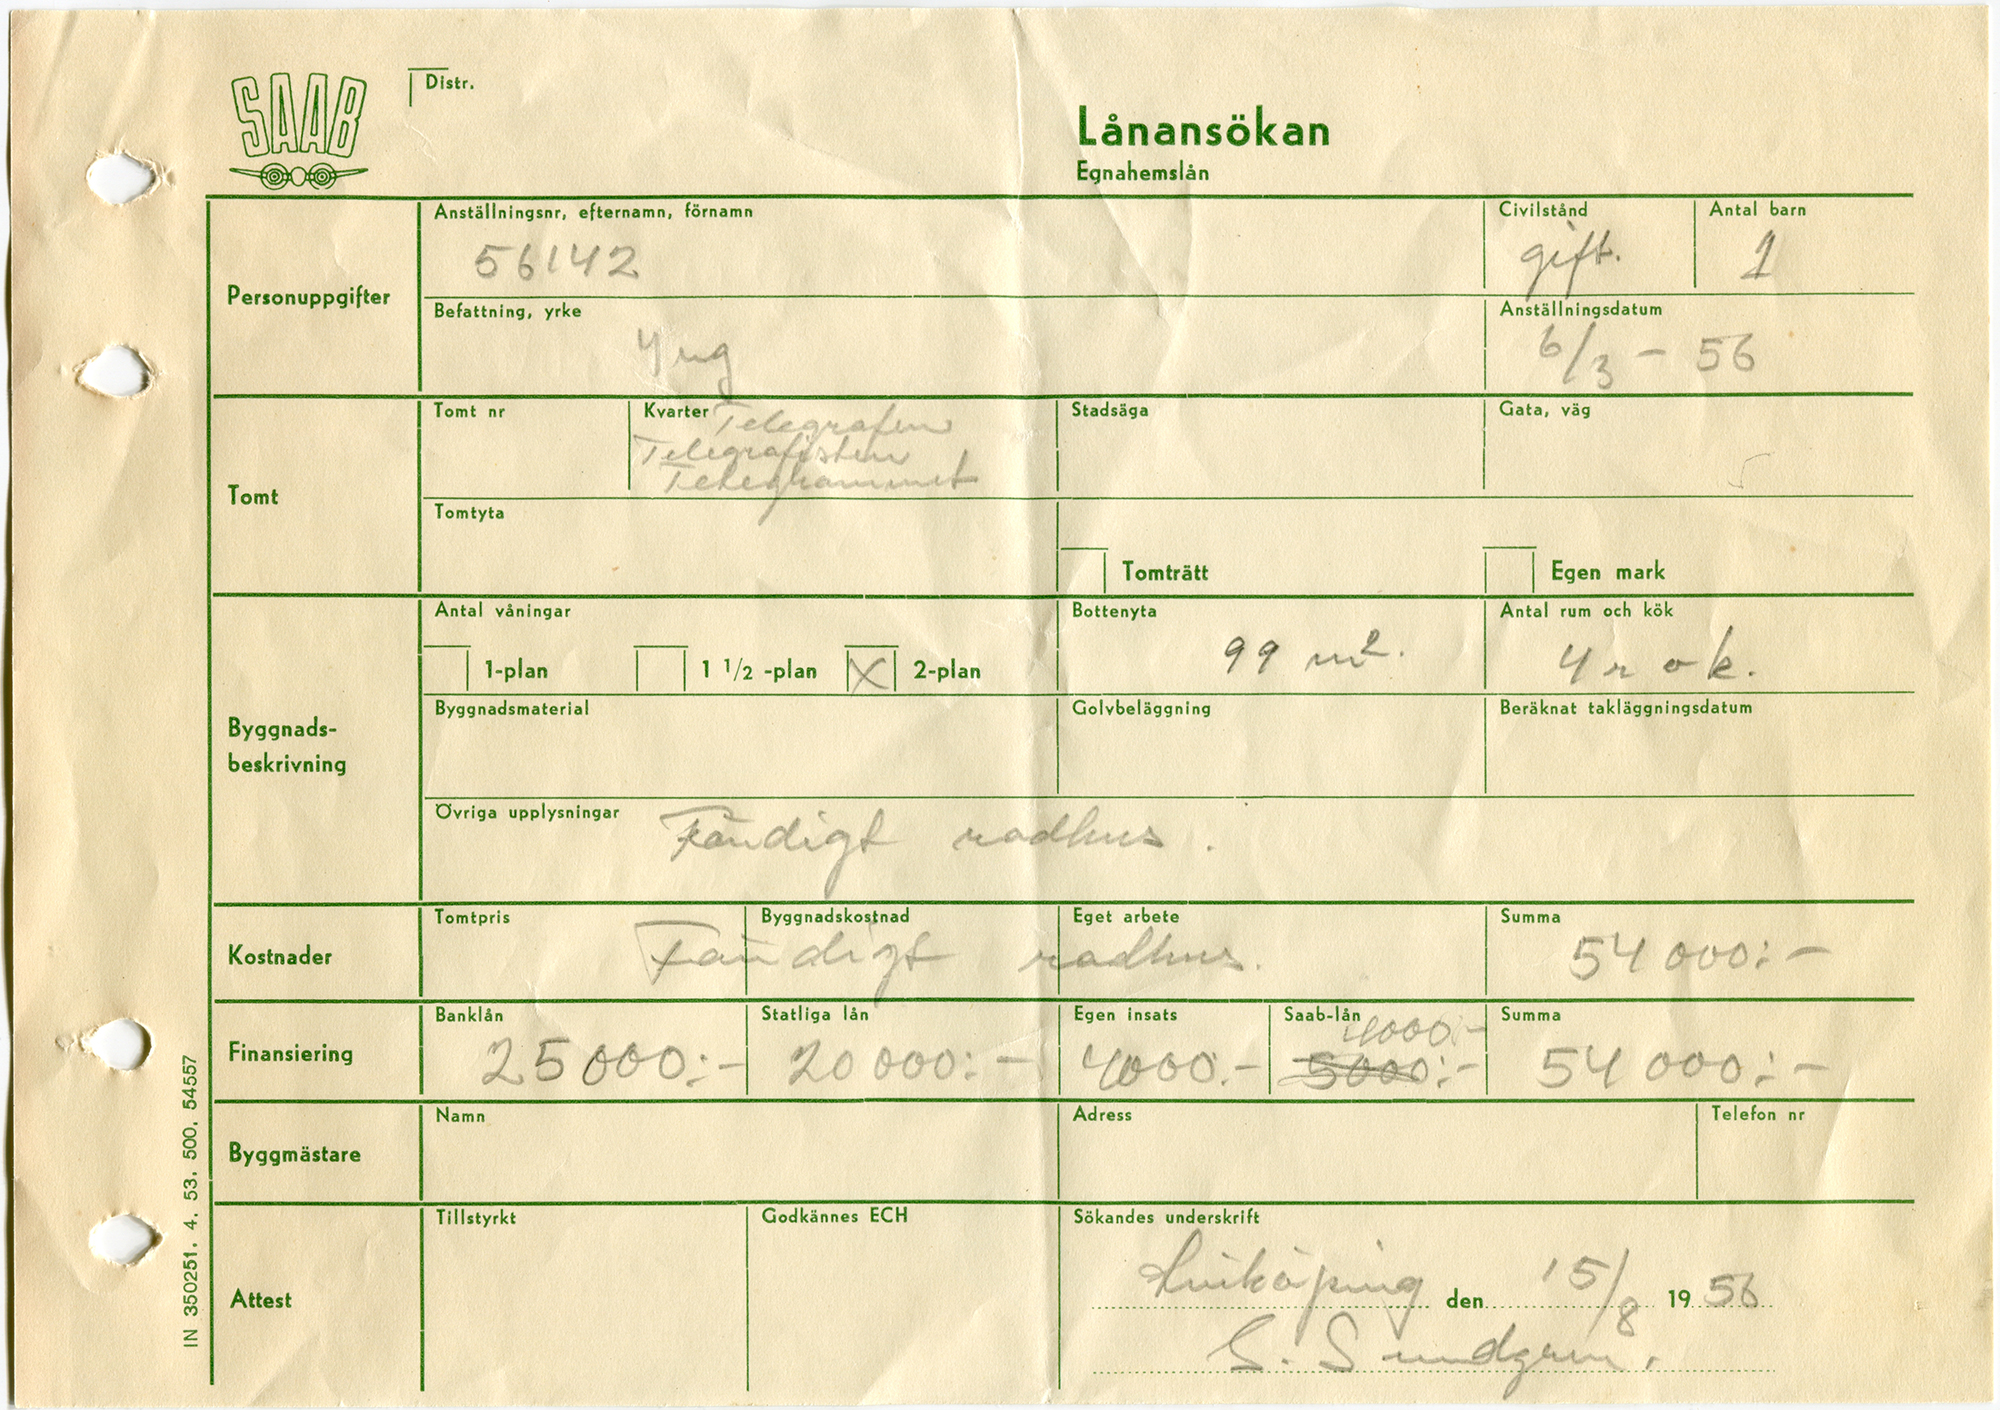 SAAB
Distr.
Lånansökan
Egnahemslån
Personuppgifter
Anställningsnr, efternamn, förnamn
56142
Civilstånd
gift.
Antal barn
1
Befattning, yrke
Anställningsdatum
6/3 - 56
Tomt
Tomt nr
Kvarter Telegrafen
Telegrafisten
Telegrammet
Stadsäga
Gata, väg
Tomtyta
Tomträtt
Egen mark
Byggnads-
beskrivning
Antal våningar
1-plan
1 1/2 -plan
X 2-plan
Bottenyta
99 m².
Antal rum och kök
4 r o k.
Byggnadsmaterial
Golvbeläggning
Beräknat takläggningsdatum
Övriga upplysningar
Färdigt radhus.
Kostnader
Tomtpris
Byggnadskostnad
Eget arbete
Färdigt radhus.
Summa
54 000:-
Finansiering
Banklån
25 000:-
Statliga lån
20 000:-
Egen insats
4000:-
Saab-lån
4000:-
5000:-
Summa
54 000:-
Byggmästare
Namn
Adress
Telefon nr
Attest
Tillstyrkt
Godkännes ECH
Sökandes underskrift
Linköping den 15/8 1956
S. Sundgren.
IN 350251. 4. 53. 500. 54557